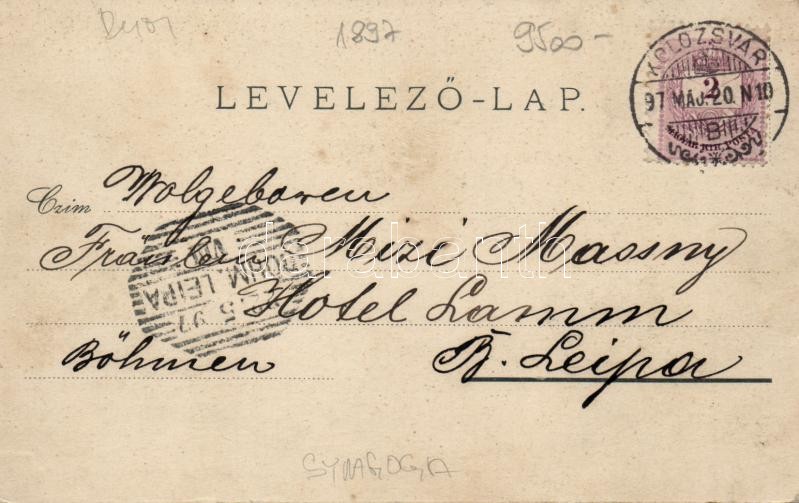 1897
9500-
KOLOZSVÁR
97 MÁJ. 20. N 10
B
2
MAGYAR KIR. POSTA
LEVELEZŐ-LAP.
Czím Wolgeboren
Fräulein Mizi Massny
Hotel Lamm
Böhmen B. Leipa
BÖHM. LEIPA
5 97
darabanth
SYNAGOGA